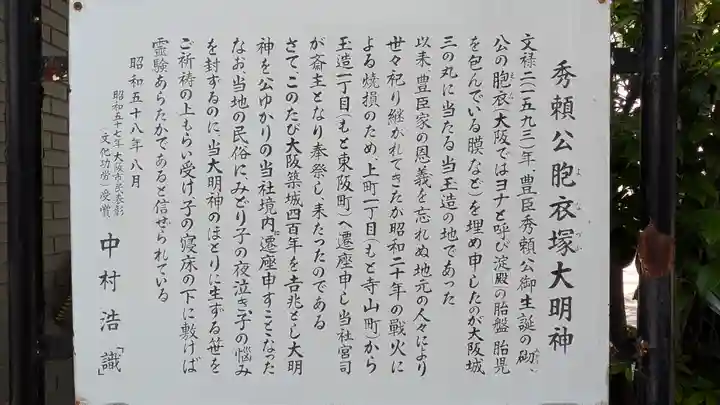 秀頼公胞衣塚大明神
よなづか
文禄二(一五九三)年、豊臣秀頼公御生誕の砌、
公の胞衣(大阪ではヨナと呼び淀殿の胎盤、胎児
を包んでいる膜など)を埋め申したのが大阪城
三の丸に当たる当玉造の地であった
以来、豊臣家の恩義を忘れぬ地元の人々により
世々祀り継がれてきたが昭和二十年の戦火に
よる焼損のため、上町一丁目(もと寺山町)から
玉造一丁目(もと東阪町)へ遷座申し当社宮司
が斎主となり奉祭し、来たったのである
さて、このたび大阪築城四百年を吉兆とし大明
神を公ゆかりの当社境内に遷座申すことになった
なお、当地の民俗に、みどり子の夜泣き、子の悩み
を封ずるのに、当大明神のほとりに生ずる笹を
ご祈祷の上もらい受け子の寝床の下に敷けば
霊験あらたかであると信ぜられている
昭和五十八年八月
昭和五十七年大阪市民表彰
(文化功労)受賞
中村浩「識」